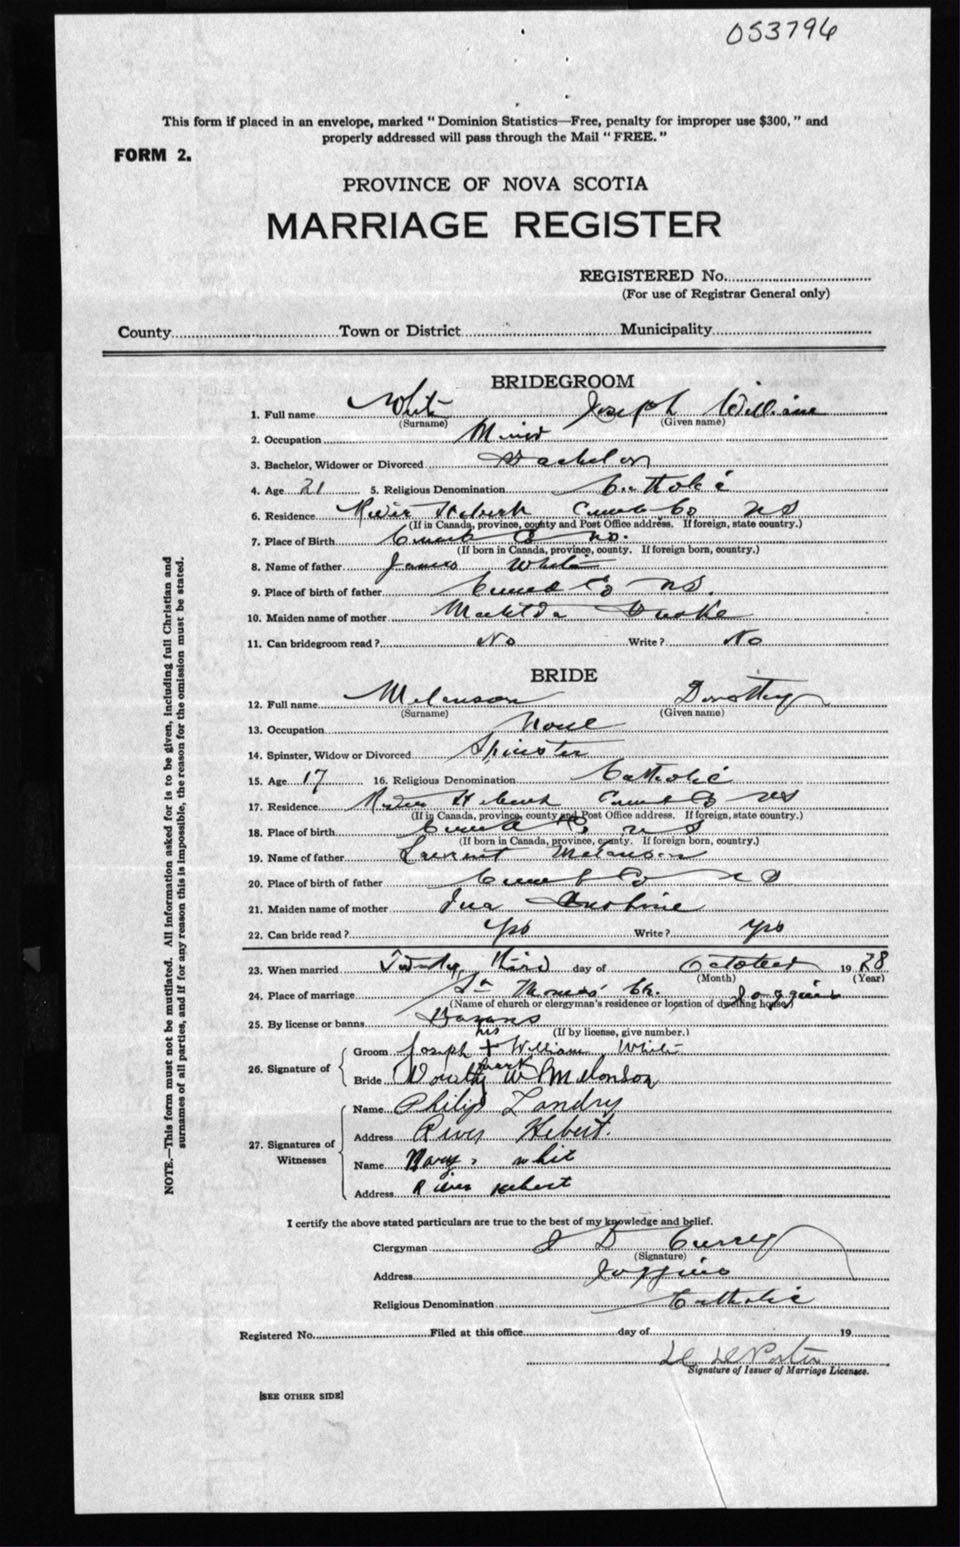 053794
This form if placed in an envelope, marked " Dominion Statistics—Free, penalty for improper use $300, " and
properly addressed will pass through the Mail " FREE. "
FORM 2.
PROVINCE OF NOVA SCOTIA
MARRIAGE REGISTER
REGISTERED No.
(For use of Registrar General only)
County Town or District Municipality
BRIDEGROOM
1. Full name White Joseph William
(Surname) (Given name)
2. Occupation Miner
3. Bachelor, Widower or Divorced Bachelor
4. Age 21 5. Religious Denomination Catholic
6. Residence River Hebert Cumb Co NS
(If in Canada, province, county and Post Office address. If foreign, state country.)
7. Place of Birth Cumb Co NS.
(If born in Canada, province, county. If foreign born, country.)
8. Name of father James White
9. Place of birth of father Cumb Co NS.
10. Maiden name of mother Matilda
11. Can bridegroom read ? No Write ? No
BRIDE
12. Full name Melanson Dorothy
(Surname) (Given name)
13. Occupation None
14. Spinster, Widow or Divorced Spinster
15. Age 17 16. Religious Denomination Catholic
17. Residence River Hebert Cumb Co NS
(If in Canada, province, county and Post Office address. If foreign, state country.)
18. Place of birth Cumb Co NS
(If born in Canada, province, county. If foreign born, country.)
19. Name of father Laurent Melanson
20. Place of birth of father Cumb Co NS
21. Maiden name of mother Ina
22. Can bride read ? Yes Write ? Yes
23. When married Twenty third day of October 19 28
(Month) (Year)
24. Place of marriage St Thomas' Ch. Joggins
(Name of church or clergyman's residence or location of dwelling house)
25. By license or banns Banns
(If by license, give number.)
his
26. Signature of Groom Joseph + William White
mark
Bride Dorothy W Melonson
27. Signatures of Witnesses
Name Philip Landry
Address River Hebert.
Name Mary white
Address River hebert
I certify the above stated particulars are true to the best of my knowledge and belief.
Clergyman J D Currey
(Signature)
Address Joggins
Religious Denomination Catholic
Registered No. Filed at this office day of 19
Porter
Signature of Issuer of Marriage Licenses.
[SEE OTHER SIDE]
NOTE.—This form must not be mutilated. All information asked for is to be given, including full Christian and
surnames of all parties, and if for any reason this is impossible, the reason for the omission must be stated.